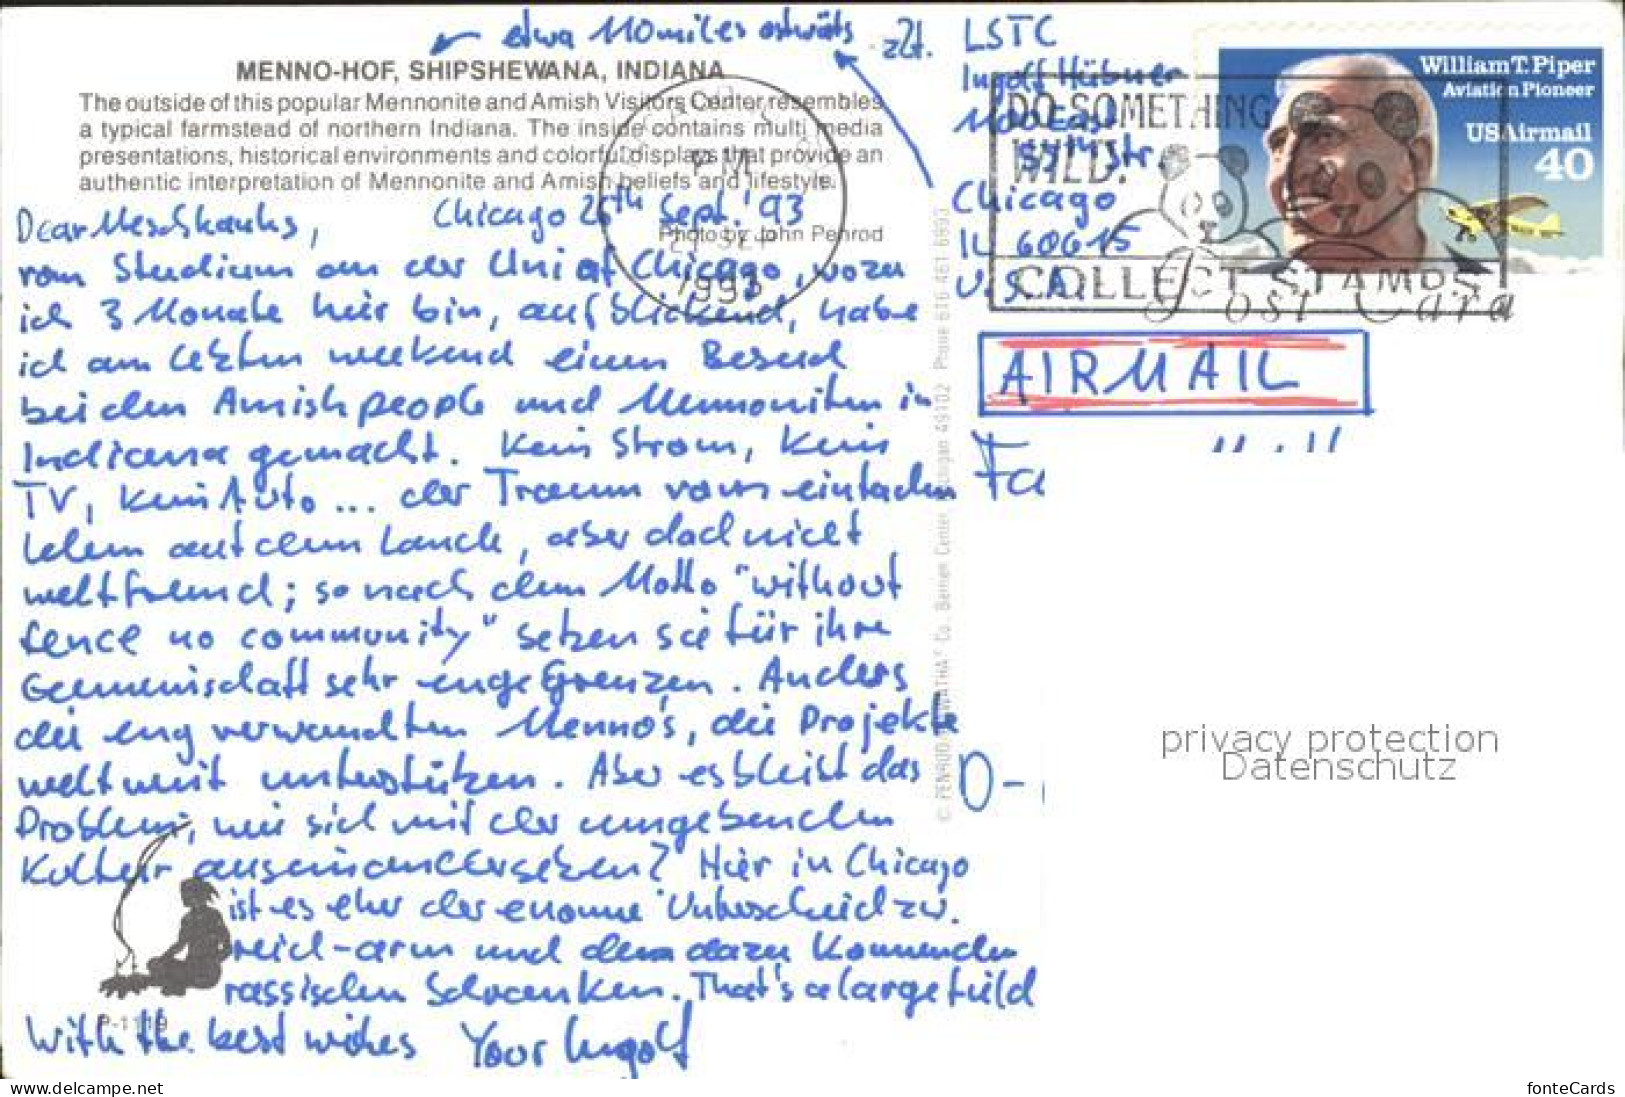 etwa 110 miles ostwärts
MENNO-HOF, SHIPSHEWANA, INDIANA
The outside of this popular Mennonite and Amish Visitors Center resembles
a typical farmstead of northern Indiana. The inside contains multi media
presentations, historical environments and colorful displays that provide an
authentic interpretation of Mennonite and Amish beliefs and lifestyle.
Photo by John Penrod
Chicago 26th Sept. '93
Dear
vom Studium an der Uni of Chicago, wozu
ich 3 Monate hier bin, aufblickend, habe
ich am letzten weekend einen Besuch
bei den Amish people und Mennoniten in
Indiana gemacht. Kein Strom, kein
TV, kein Auto ... der Traum vom einfachen
Leben auf dem Lande, aber doch nicht
weltfremd; so nach dem Motto "without
fence no community" setzen sie für ihre
Gemeinschaft sehr enge Grenzen. Anders
die eng verwandten Menno's, die Projekte
weltweit unterstützen. Aber es bleibt das
Problem, wie sich mit der umgebenden
Kultur auseinandersetzen? Hier in Chicago
ist es eher der enorme Unterschied zw.
reich-arm und dem dazu kommenden
rassischen Schranken. That's a large field
With the best wishes Your Ingolf
P-1119
zZt. LSTC
Ingolf Hübner
1100 East
57th Str.
Chicago
IL 60615
U.S.A.
William T. Piper
Aviation Pioneer
USAirmail
40
DO SOMETHING
WILD!
COLLECT STAMPS
PM
1993
Post Card
AIRMAIL
Fa
D-
© PENROD/HIAWATHA Co., Berrien Center, Michigan 49102 Phone 616 461 6993
privacy protection
Datenschutz
www.delcampe.net
fonteCards